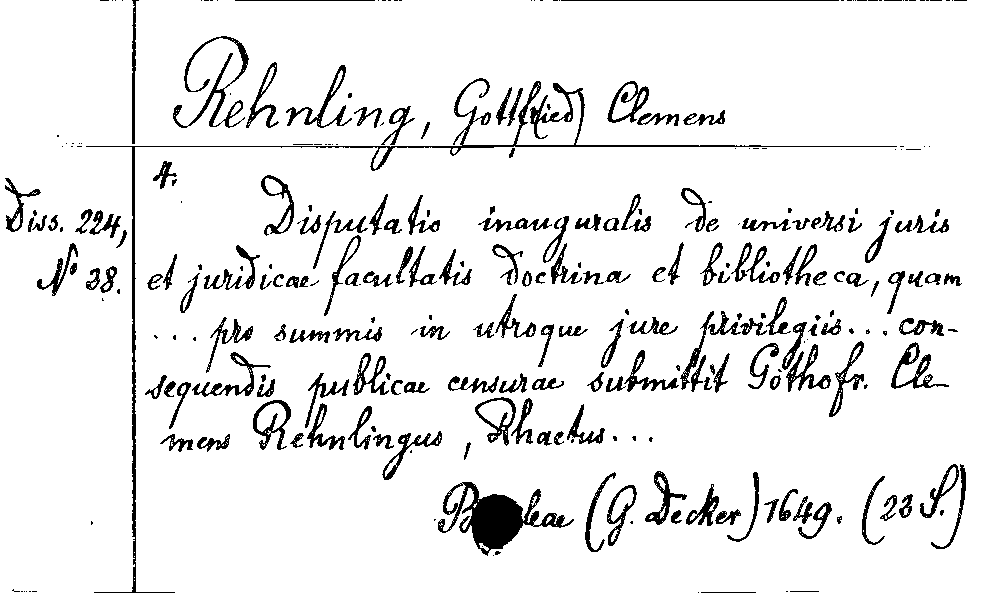 Rehnling, Gottfr(ied) Clemens
4.
Diss. 224,
No 38.
Disputatio inauguralis de universi juris
et juridicae facultatis doctrina et bibliotheca, quam
... pro summis in utroque jure privilegiis... con-
sequendis publicae censurae submittit Gothofr. Cle-
mens Rehnlingus, Rhaetus...
(G. Decker) 1649. (23 S.)